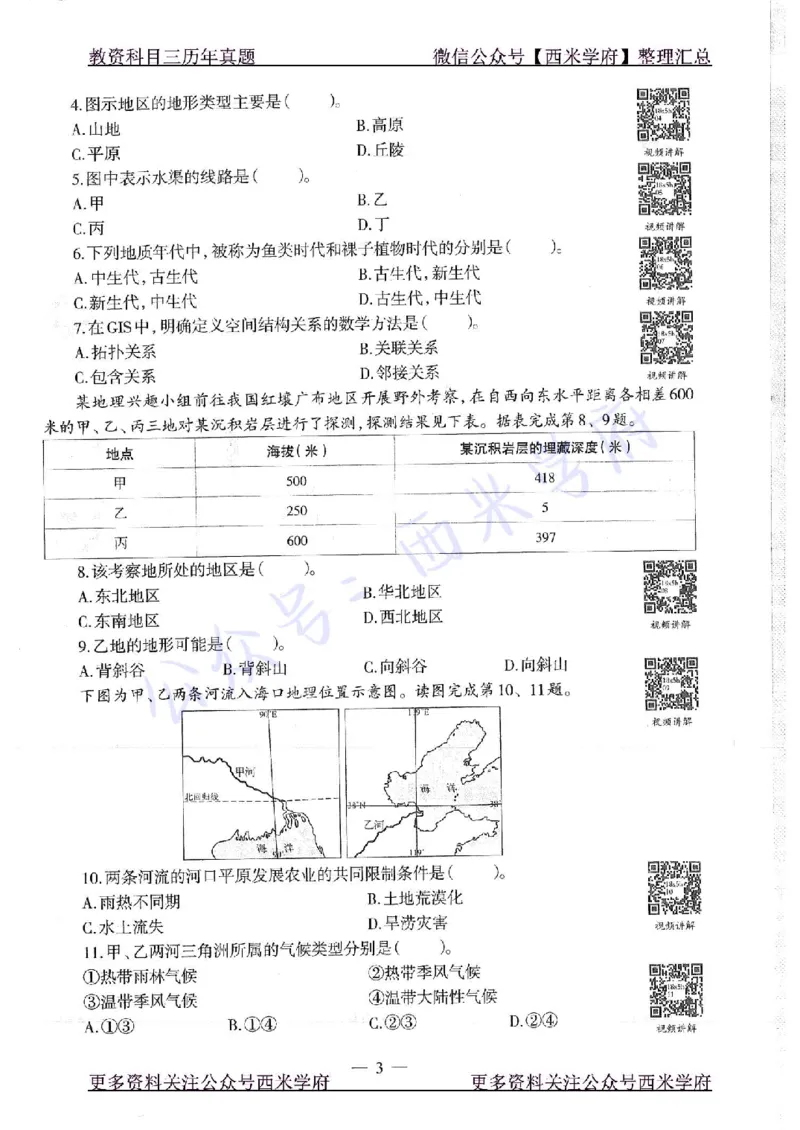 教资科目三历年真题 微信公众号【西米学府】整理汇总
4.图示地区的地形类型主要是( )。
A.山地 B.高原
C.平原 D.丘陵
视频讲解
5.图中表示水渠的线路是( )。
A.甲 B.乙
C.丙 D.丁
视频讲解
6.下列地质年代中,被称为鱼类时代和裸子植物时代的分别是( )。
A.中生代,古生代 B.古生代,新生代
C.新生代,中生代 D.古生代,中生代
视频讲解
7.在GIS中,明确定义空间结构关系的数学方法是( )。
A.拓扑关系 B.关联关系
C.包含关系 D.邻接关系
视频讲解
某地理兴趣小组前往我国红壤广布地区开展野外考察,在自西向东水平距离各相差600
米的甲、乙、丙三地对某沉积岩层进行了探测,探测结果见下表。据表完成第8、9题。
地点 海拔(米) 某沉积岩层的埋藏深度(米)
甲 500 418
乙 250 5
丙 600 397
公众号:西米学府
8.该考察地所处的地区是( )。
A.东北地区 B.华北地区
C.东南地区 D.西北地区
视频讲解
9.乙地的地形可能是( )。
A.背斜谷 B.背斜山 C.向斜谷 D.向斜山
下图为甲、乙两条河流入海口地理位置示意图。读图完成第10、11题。
视频讲解
90°E 119°E
甲河
北回归线
海 洋
海 洋
38°N 38°
乙河
119°
10.两条河流的河口平原发展农业的共同限制条件是( )。
A.雨热不同期 B.土地荒漠化
C.水土流失 D.旱涝灾害
视频讲解
11.甲、乙两河三角洲所属的气候类型分别是( )。
①热带雨林气候 ②热带季风气候
③温带季风气候 ④温带大陆性气候
A.①③ B.①④ C.②③ D.②④
视频讲解
— 3 —
更多资料关注公众号西米学府 更多资料关注公众号西米学府